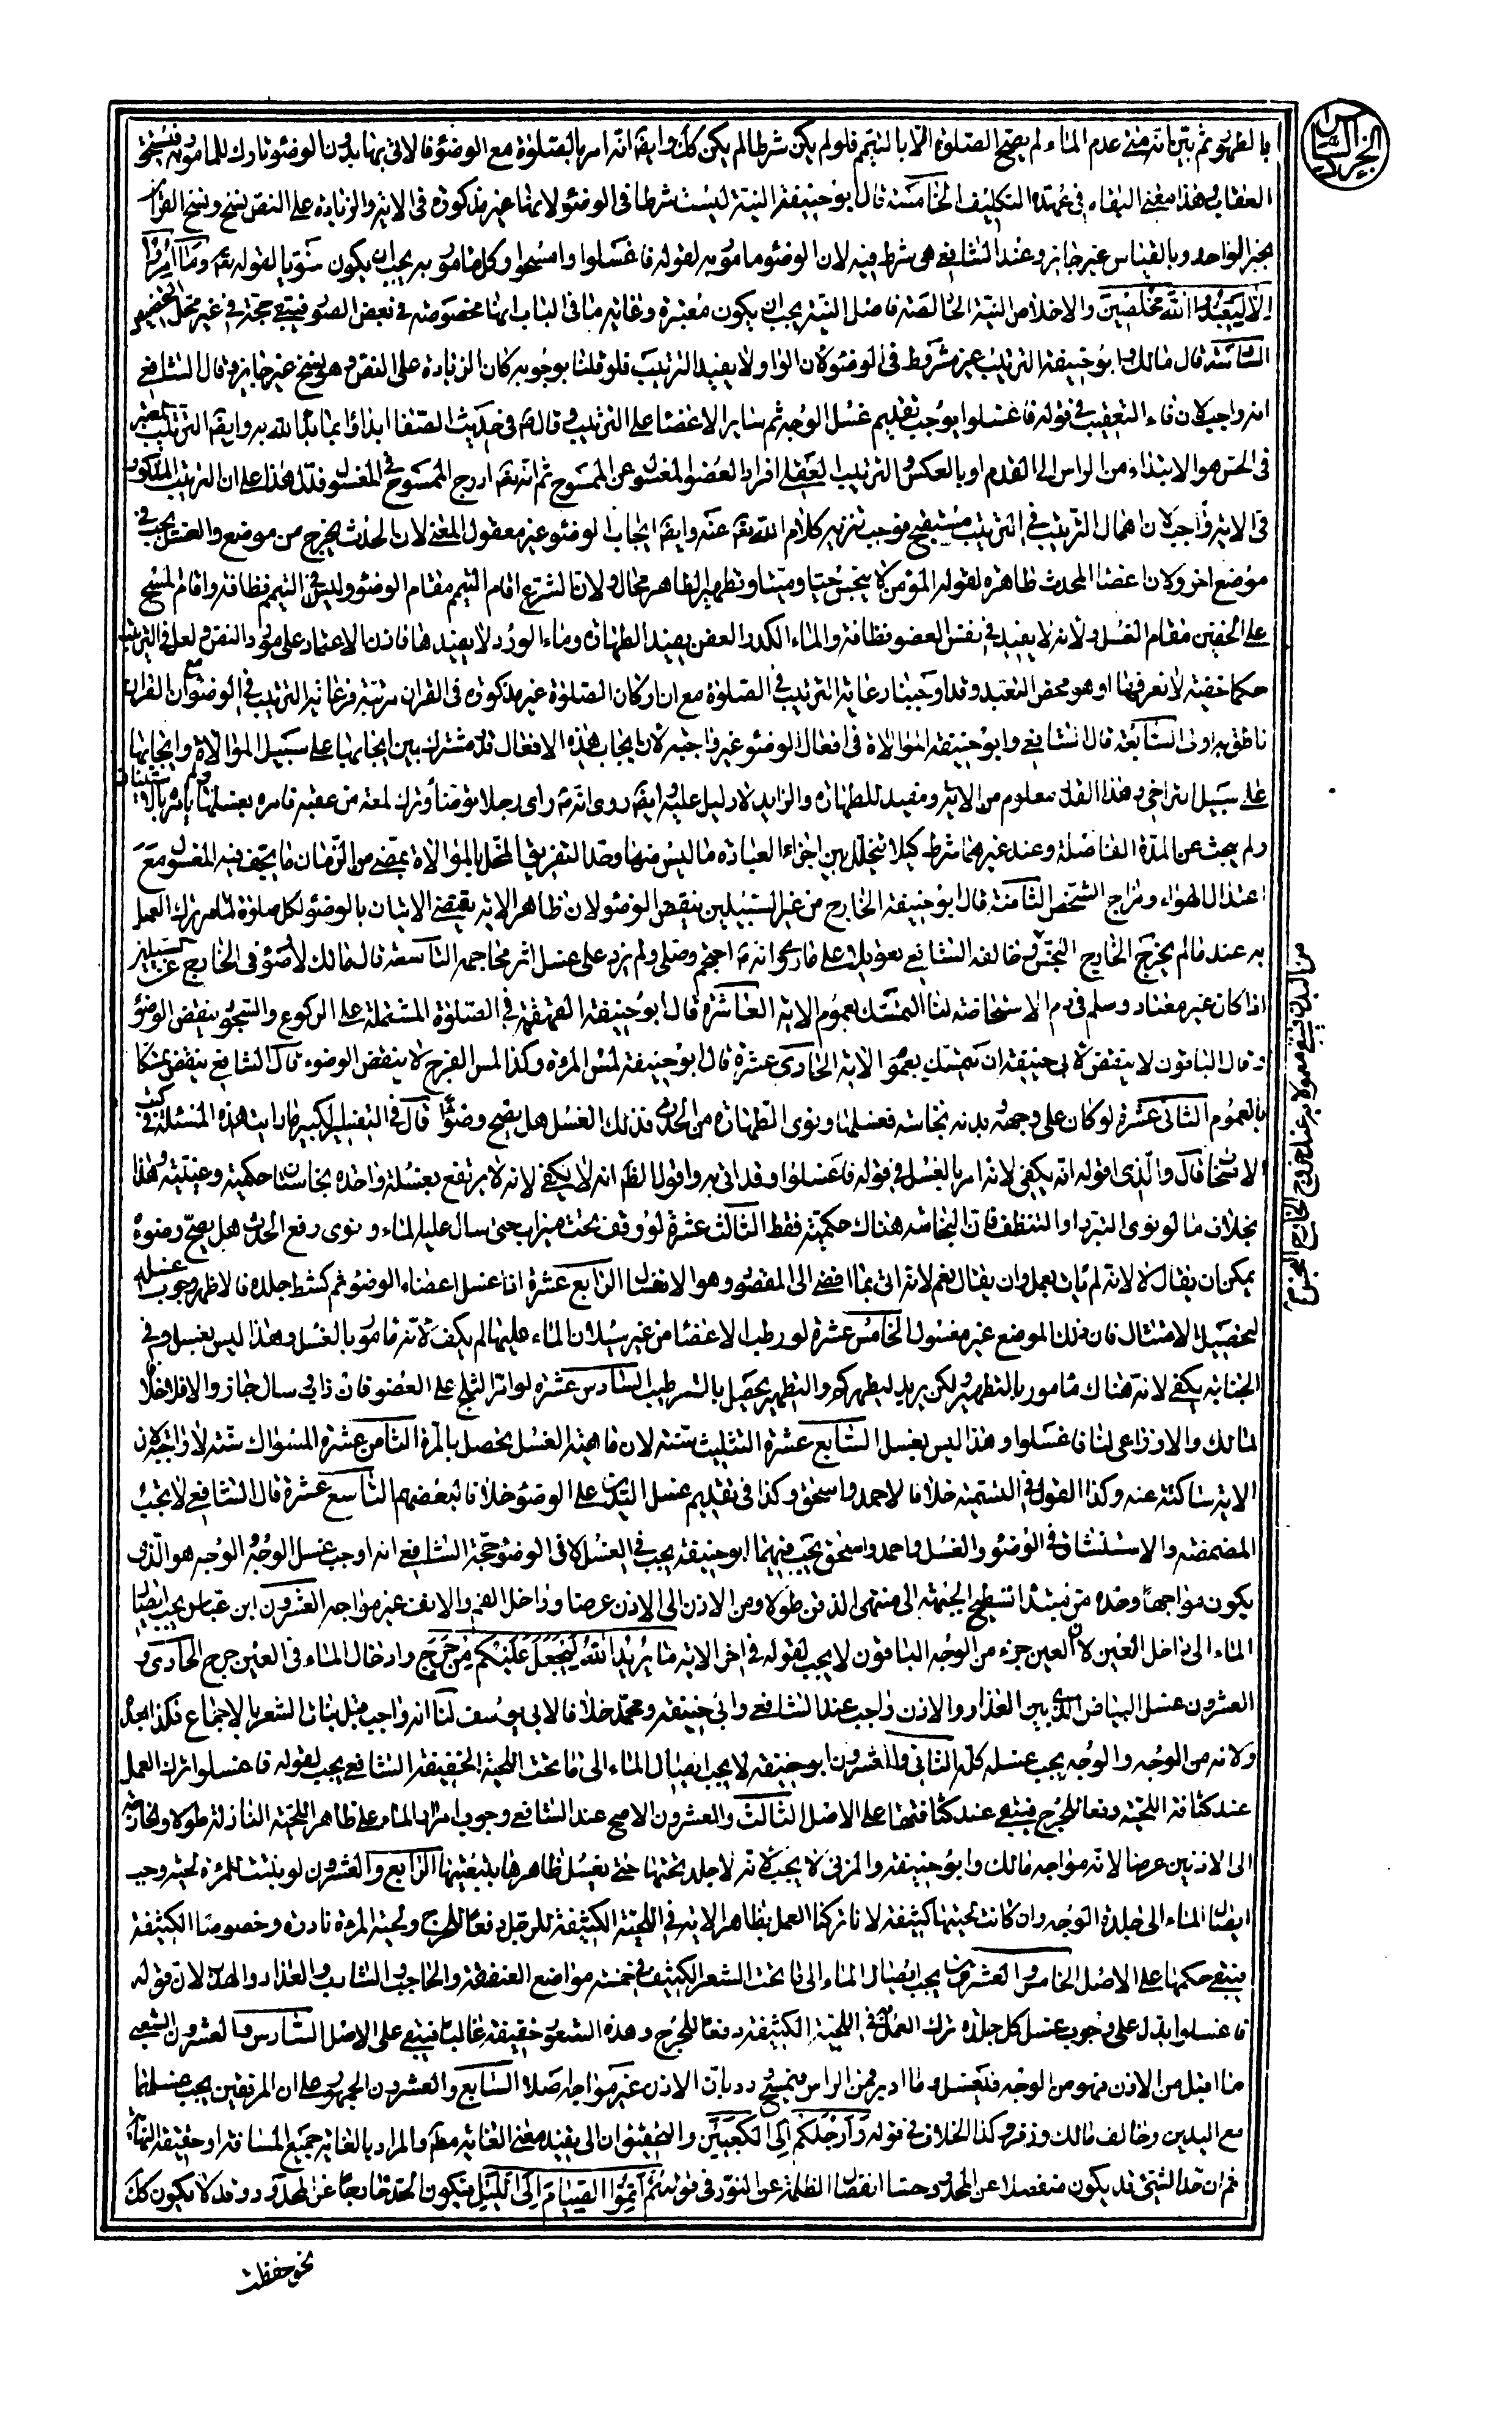 الجزء السادس
بالطهور ثم بين انه متى عدم الماء لم يصح الصلوة الا بالتيمم فلو لم يكن شرطا لم يكن كك وايضا انه امر بالصلوة مع الوضوء فالاتى بها بدون الوضوء تارك للمامور به فيستحق
العقاب وهذا معنى البقاء فى عهدة التكليف الخامسة قال ابو حنيفة النية ليست شرطا فى الوضوء لانها غير مذكورة فى الاية والزيادة على النص نسخ ونسخ القران
بخبر الواحد وبالقياس غير جايز وعند الشافعى هى شرط فيه لان الوضوء مامور به لقوله فاغسلوا وامسحوا وكل مامور به يجب ان يكون منويا لقوله تعه وما امروا
الا ليعبدوا الله مخلصين والاخلاص النية الخالصة فاصل النية يجب ان يكون معتبرة وغاية ما فى الباب انها مخصوصة فى بعض الصور فيبقى حجة فى غير محل التخصيص
السادسة قال مالك وابو حنيفة الترتيب غير مشروط فى الوضوء لان الواو لا يفيد الترتيب فلو قلنا بوجوبه كان الزيادة على النص وهو نسخ غير جايز وقال الشافعى
انه واجب لان فاء التعقيب فى قوله فاغسلوا يوجب تقديم غسل الوجه ثم ساير الاعضا على الترتيب وقال ص فى حديث الصفا ابداوا بما بدا الله به وايضا الترتيب المعتبر
فى الحس هو الابتداء من الراس الى القدم او بالعكس والترتيب العقلى افراد العضو المغسول عن الممسوح ثم انه تعه ادرج الممسوح فى المغسول فدل هذا على ان الترتيب المذكور
فى الاية واجب لان اهمال الترتيب فى الترتيب مستقبح فوجب تنزيه كلام الله تعه عنه وايضا ايجاب الوضوء غير معقول المعنى لان الحدث يخرج من موضع والغسل يجب فى
موضع اخر ولان اعضا المحدث طاهرة لقوله المؤمن لا ينجس حيا وميتا وتطهير الطاهر محال ولان الشرع اقام التيمم مقام الوضوء وليس فى التيمم نظافة واقام المسح
على الخفين مقام الغسل ولانه لا يفيد فى نفس العضو نظافة والماء الكدر العفن يفيد الطهارة وماء الورد لا يفيدها فاذن الاعتماد على مورد النص ولعل فى الترتيب
حكما خفية لا نعرفها او هو محض التعبد وقد اوجبنا رعاية الترتيب فى الصلوة مع ان اركان الصلوة غير مذكورة فى القران مرتبة فرعاية الترتيب فى الوضوء مع ان القران
ناطق به اولى السابعة قال الشافعى وابو حنيفة الموالاة فى افعال الوضوء غير واجبة لان ايجاب هذه الافعال قدر مشترك بين ايجابها على سبيل الموالاة وايجابها
على سبيل التراخى وهذا القدر معلوم من الاية ومفيد للطهارة والزايد لا دليل عليه وايضا روى انه ص راى رجلا توضأ وترك لمعة من عقبه فامره بغسلها ولم يامره بالاستيناف
ولم يبحث عن المدة الفاصلة وعند غيرهما شرط كيلا يتخلل بين اجزاء العبادة ما ليس منها وحد التفريق المخل بالموالاة بمضى من الزمان ما يجف فيه المغسول مع
اعتدال الهواء ومزاج الشخص الثامنة قال ابو حنيفة الخارج من غير السبيلين ينقض الوضوء لان ظاهر الاية يقتضى الاتيان بالوضوء لكل صلوة لما مر ترك العمل
به عند ما لم يخرج الخارج النجس خالفه الشافعى تعويلا على ما روى انه ص احتجم وصلى ولم يزد على غسل اثر محاجمه التاسعة قال مالك لا وضوء فى الخارج من السبيلين
اذا كان غير معتاد وسلم فى دم الاستحاضة لنا التمسك بعموم الاية العاشرة قال ابو حنيفة القهقهة فى الصلوة المشتملة على الركوع والسجود ينقض الوضوء
وقال الباقون لا ينقض لابى حنيفة ان يتمسك بعموم الاية الحادى عشرة قال ابو حنيفة لمس المرءة وكذا لمس الفرج لا ينقض الوضوء قال الشافعى ينقض تمسكا
بالعموم الثانى عشرة لو كان على وجهه وبدنه نجاسة فغسلها ونوى الطهارة من الحدث بذلك الغسل هل يصح وضوؤه قال فى التفسير الكبير ما رايت هذه المسئلة فى كتب
الاصحاب قال والذى اقوله انه يكفى لانه امر بالغسل فى قوله فاغسلوا وقد اتى به واقول الظ انه لا يكفى لانه لا يرتفع بغسلة واحدة نجاستان حكمية وعينية وهذا
بخلاف ما لو نوى التبرد او التنظف فان النجاسة هناك حكمية فقط الثالث عشرة لو وقف تحت ميزاب حتى سال عليه الماء ونوى رفع الحدث هل يصح وضوءه
يمكن ان يقال لا لانه لم يات بعمل وان يقال نعم لانه اتى بما افضى الى المقصود وهو الانغسال الرابع عشرة اذا غسل اعضاء الوضوء ثم كشط جلده فالاظهر وجوب غسله
ليحصل الامتثال فان ذلك الموضع غير مغسول الخامس عشرة لو رطب الاعضا من غير سيلان الماء عليها لم يكف لانه مامور بالغسل وهذا ليس بغسل وفى
الجنابة يكفى لانه هناك مامور بالتطهير ولكن يريد ليطهركم والتطهير يحصل بالترطيب السادس عشرة لو امر الثلج على العضو فان ذاب وسال جاز والا فلا خلافا
لمالك والاوزاعى لنا فاغسلوا وهذا ليس بغسل السابع عشرة التثليث سنة لان ماهية الغسل يحصل بالمرة الثامن عشرة السواك سنة لا واجب لان
الاية ساكتة عنه وكذا القول فى التسمية خلافا لاحمد واسحق وكذا فى تقديم غسل اليدين على الوضوء خلافا لبعضهم التاسع عشرة قال الشافعى لا يجب
المضمضة والاستنشاق فى الوضوء والغسل واحمد واسحق يجب فيهما ابو حنيفة يجب فى الغسل لا فى الوضوء حجة الشافعى انه اوجب غسل الوجه والوجه هو الذى
يكون مواجها وحده من مبتدا تسطيح الجبهة الى منتهى الذقن طولا ومن الاذن الى الاذن عرضا وداخل الفم والانف غير مواجه العشرون ابن عباس يجب ايصال
الماء الى داخل العين لان العين جزء من الوجه الباقون لا يجب لقوله فى اخر الاية ما يريد الله ليجعل عليكم من حرج وادخال الماء فى العين حرج الحادى و
العشرون غسل البياض الذى بين العذار والاذن واجب عند الشافعى وابى حنيفة ومحمد خلافا لابى يوسف لنا انه واجب قبل نبات الشعر بالاجماع فكذا بعده
ولانه من الوجه والوجه يجب غسله كله الثانى والعشرون ابو حنيفة لا يجب ايصال الماء الى ما تحت اللحية الخفيفة الشافعى يجب لقوله فاغسلوا ترك العمل
عند كثافة اللحية دفعا للحرج فيبقى عند كثافتها على الاصل الثالث والعشرون الاصح عند الشافعى وجوب امرار الماء على ظاهر اللحية النازلة طولا والخارجة
الى الاذنين عرضا لانه مواجه مالك وابو حنيفة والمزنى لا يجب لانه لا جلد تحتها حتى يغسل ظاهرها بتبعيتها الرابع والعشرون لو نبتت للمرءة لحية وجب
ايصال الماء الى جلدة الوجه وان كانت لحيتها كثيفة لانا تركنا العمل بظاهر الاية فى اللحية الكثيفة للرجل دفعا للحرج ولحية المرءة نادرة وخصوصا الكثيفة
فيبقى حكمها على الاصل الخامس والعشرون يجب ايصال الماء الى ما تحت الشعر الكثيف فى خمسة مواضع العنفقة والحاجب والشارب والعذار والهدب لان قوله
فاغسلوا يدل على وجوب غسل كل جلده ترك العمل فى اللحية الكثيفة دفعا للحرج وهذه الشعور خفيفة غالبا فيبقى على الاصل السادس والعشرون الشعبى
ما اقبل من الاذن فهو من الوجه فيغسل وما ادبر فمن الراس فيمسح ورد بان الاذن غير مواجه اصلا السابع والعشرون الجمهور على ان المرفقين يجب غسلهما
مع اليدين وخالف مالك وزفر وكذا الخلاف فى قوله وارجلكم الى الكعبين والتحقيق ان الى يفيد معنى الغاية مطم والمراد بالغاية جميع المسافة او حقيقة النهاية
ثم ان حد الشىء قد يكون منفصلا عن المحدود حسا انفصال الظلمة عن النور فى قوله ثم اتموا الصيام الى الليل فيكون الحد خارجا عن المحدود وقد لا يكون كك
نحو حفظت